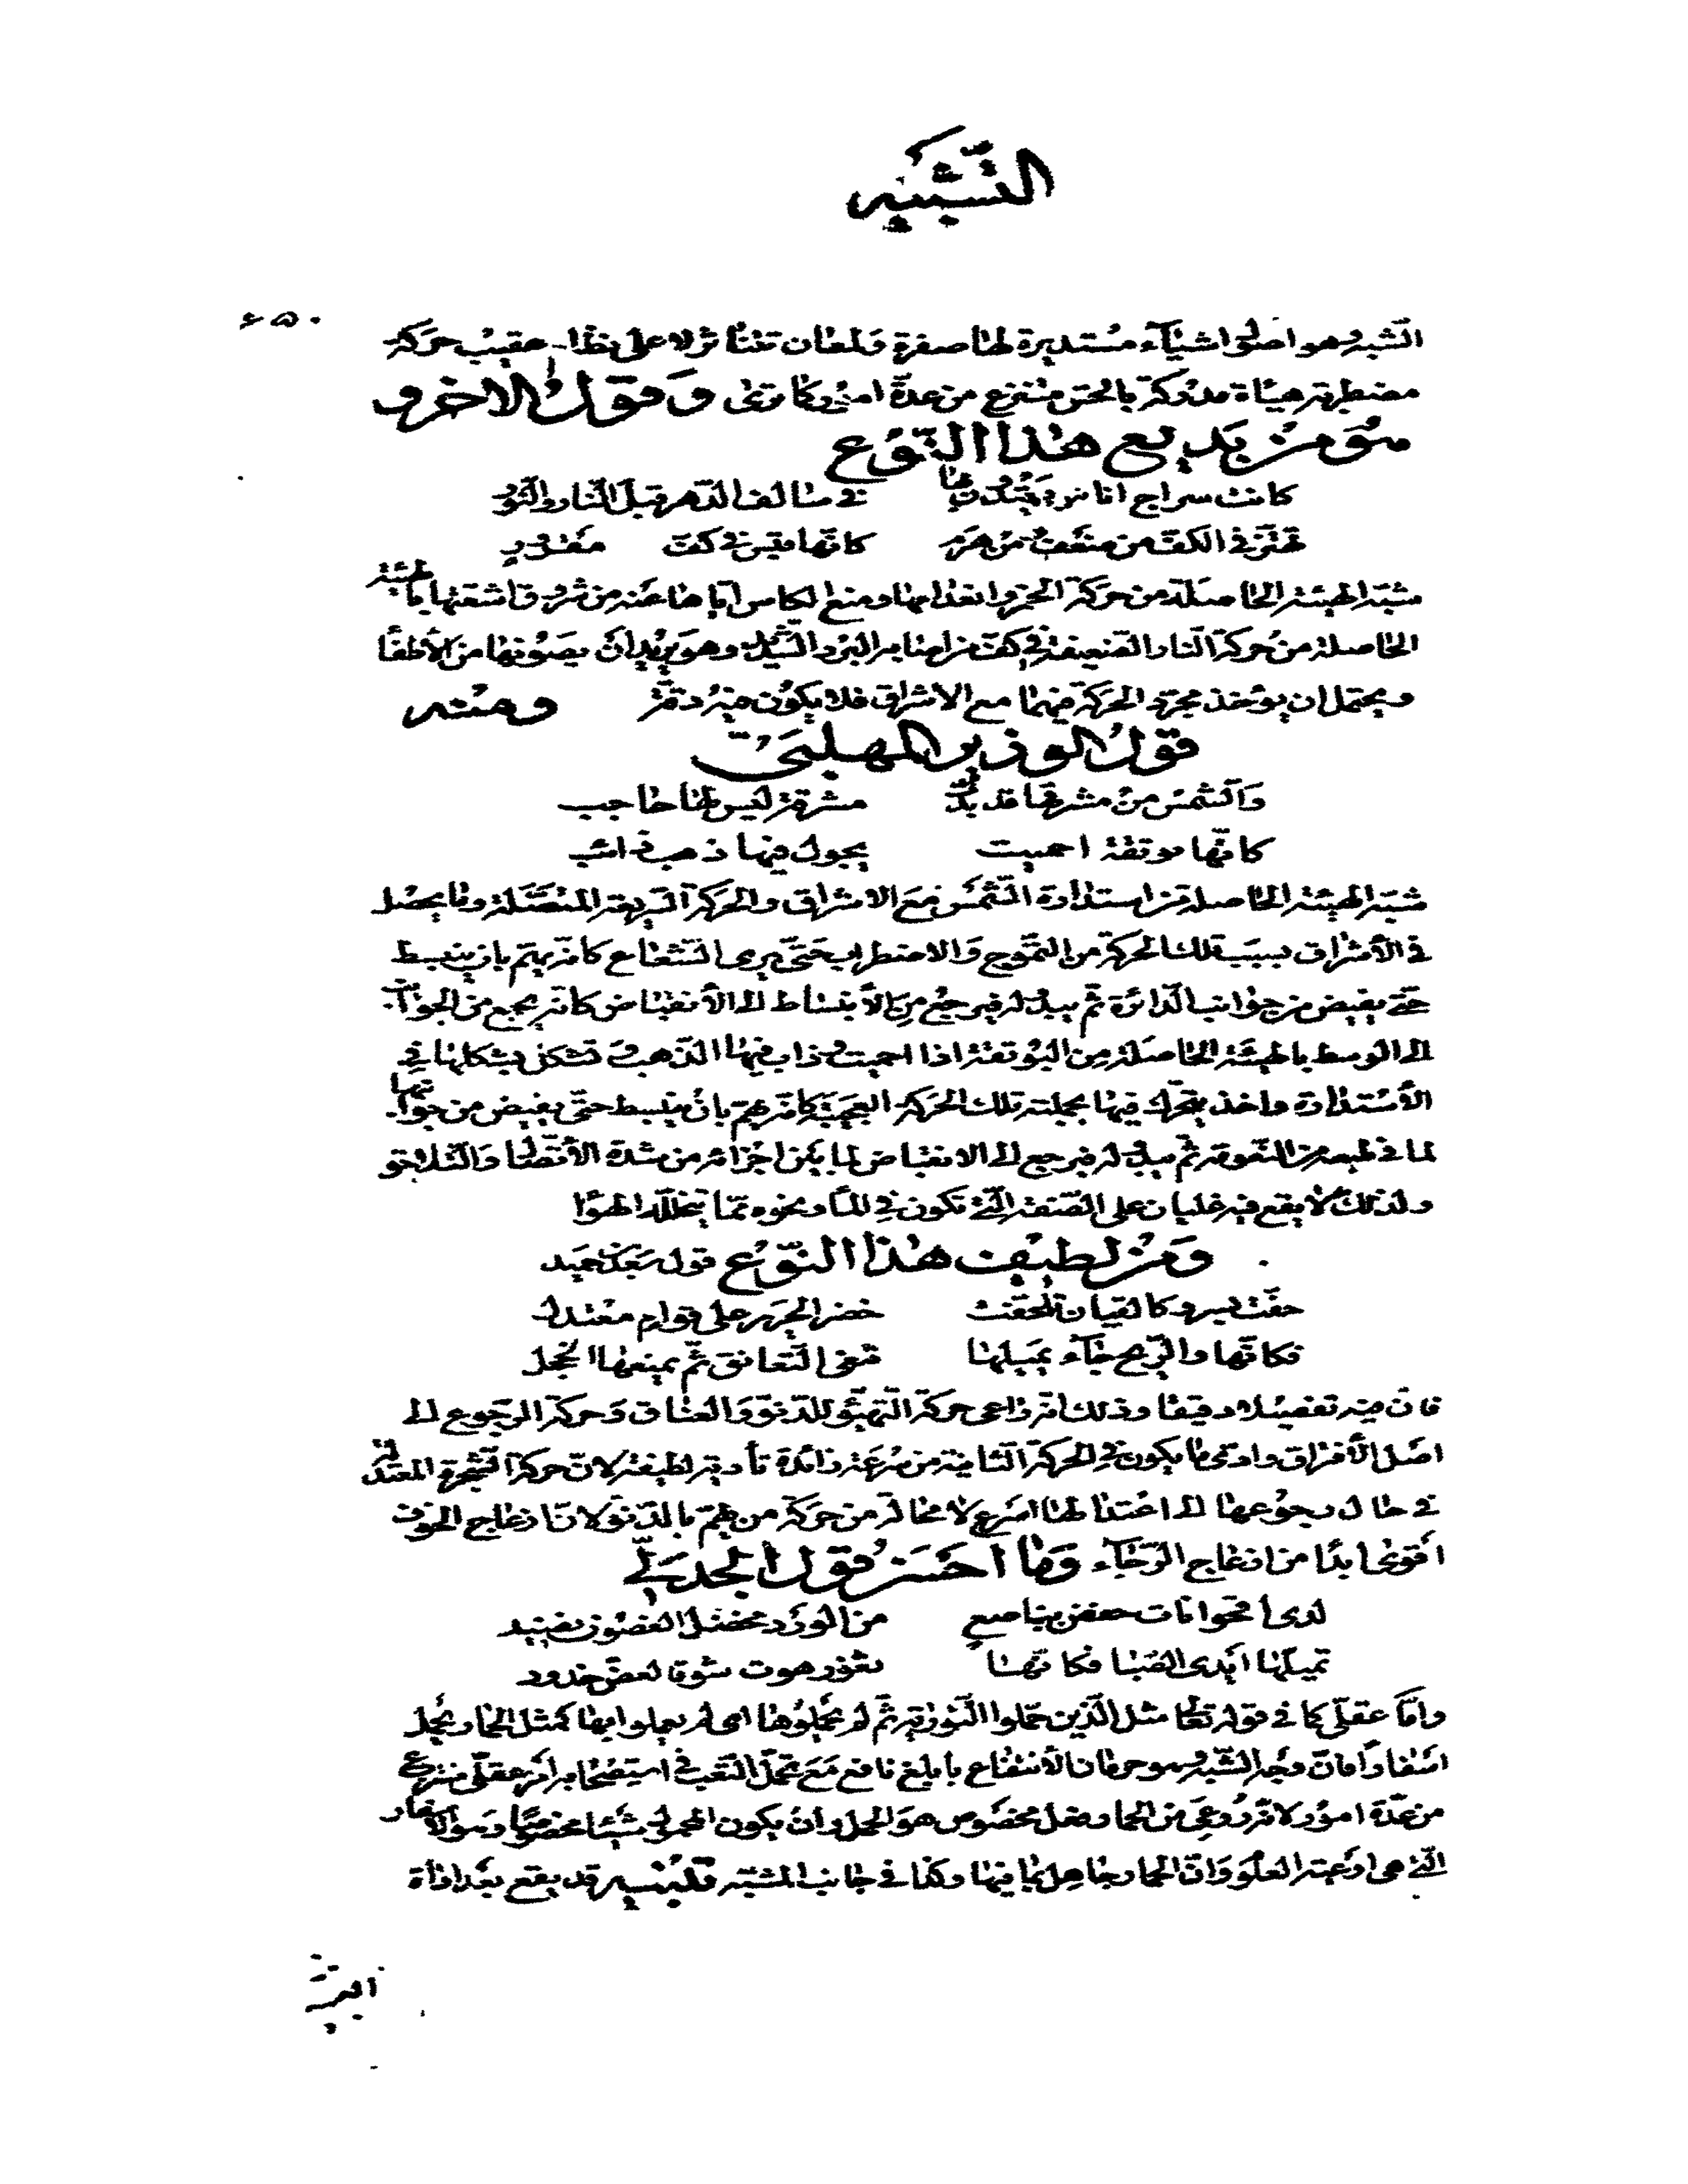 التشبيه
٤٥٠
الشبه هو اصل اشياء مستديرة لها صفرة ولمعان تتناثر لا على نظام عقيب حركة
مضطربة هيئة مدركة بالحس منتزع من عدة امور كما ترى وقول الاخر و
هو من بديع هذا النوع
كانت سراج اناس يهتدون بها في سالف الدهر قبل النار والنور
تهتز في الكف من ضعف ومن هرم كانها قبس في كف مقرور
شبه الهيئة الحاصلة من حركة الخمر وانعدامها ومنع الكاس اياها عنه من شروق اشعتها بالهيئة
الحاصلة من حركة النار الضعيفة في كف من اصابه البرد الشديد وهو يريد ان يصونها من الأطفا
ويحتمل ان يؤخذ مجرد الحركة فيهما مع الاشراق فلا يكون فيه دقة ومنه
قول الوزير المهلبي
والشمس من مشرقها قد بدت مشرقة ليس لها حاجب
كانها بوتقة احميت يجول فيها ذهب ذائب
شبه الهيئة الحاصلة من استدارة الشمس مع الاشراق والحركة السريعة المتصلة وما يحصل
في الأشراق بسبب تلك الحركة من التموج والاضطراب حتى يرى الشعاع كانه يهم بان ينبسط
حتى يفيض من جوانب الدائرة ثم يبدو له فيرجع من الأنبساط الى الأنقباض كانه يجمع من الجوانب
الى الوسط بالهيئة الحاصلة من البوتقة اذا احميت وذاب فيها الذهب وتشكل بشكلها في
الأستدارة واخذ يتحرك فيها بجملته تلك الحركة العجيبة كانه يهم بان ينبسط حتى يفيض من جوانبها
لما في طبعه من النعومة ثم يبدو له فيرجع الى الانقباض لما بين اجزائه من شدة الأتصال والتلاحم
ولذلك لا يقع فيه غليان على الصفة التي تكون في الماء ونحوه مما يتخلله الهوا
ومن لطيف هذا النوع قول سعد بن حميد
حفت بسرو كالقيان تلحفت خضر الحرير على قوام معتدل
فكانها والريح جاء يميلها تبغى التعانق ثم يمنعها الخجل
فان فيه تفصيلا دقيقا وذلك انه راعى حركة التهيؤ للدنو والعناق وحركة الرجوع الى
اصل الأفتراق وادى ما يكون في الحركة الثانية من سرعة زائدة تأدية لطيفة لان حركة الشجرة المعتدلة
في حال رجوعها الى اعتدالها اسرع لا محالة من حركة من يهم بالدنو لان ازعاج الخوف
اقوى ابدا من ازعاج الرجاء وما احسن قول الجدلي
لدى أقحوانات حففن بناصع من الورد مخضل الغصون نضيد
تميلها ايدى الصبا فكانها ثغور هوت شوقا لعض خدود
واما عقلي كما في قوله تعالى مثل الذين حملوا التورية ثم لم يحملوها اى لم يعملوا بها كمثل الحمار يحمل
اسفارا فان وجه الشبه هو حرمان الأنتفاع بابلغ نافع مع تحمل التعب في استصحابه امر عقلي منتزع
من عدة امور لانه روعى من الحمار فعل مخصوص هو الحمل وان يكون المحمول شيئا مخصوصا وهو الاسفار
التي هى اوعية العلوم وان الحمار جاهل بما فيها وكذا في جانب المشبه تنبيه قد يقع بعد اداة